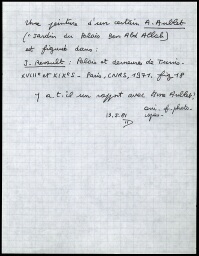 Une peinture d'un certain A. Aublet
(" Jardin du Palais Ben Abd Allah)
est figurée dans :
J. Revault : Palais et demeures de Tunis.
XVIIIe et XIXe S. - Paris, CNRS, 1971. fig 18
Y a-t-il un rapport avec Mme Aublet ?
13.5.81